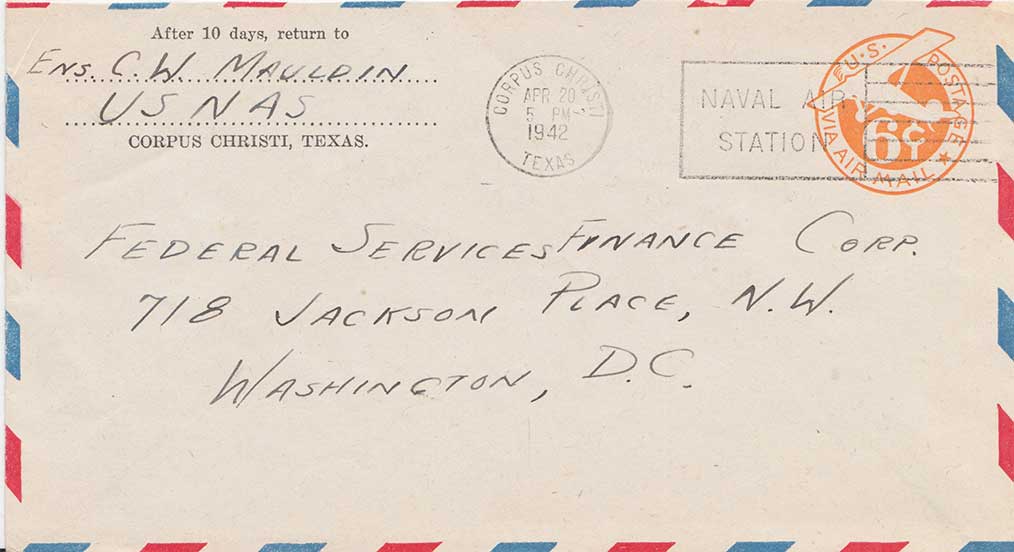 After 10 days, return to
ENS. C.W. MAULDIN
USNAS
CORPUS CHRISTI, TEXAS.
CORPUS CHRISTI
APR 20
5 PM
1942
TEXAS
NAVAL AIR
STATION
U.S. POSTAGE
6¢
VIA AIR MAIL
FEDERAL SERVICES FINANCE CORP.
718 JACKSON PLACE, N.W.
WASHINGTON, D.C.